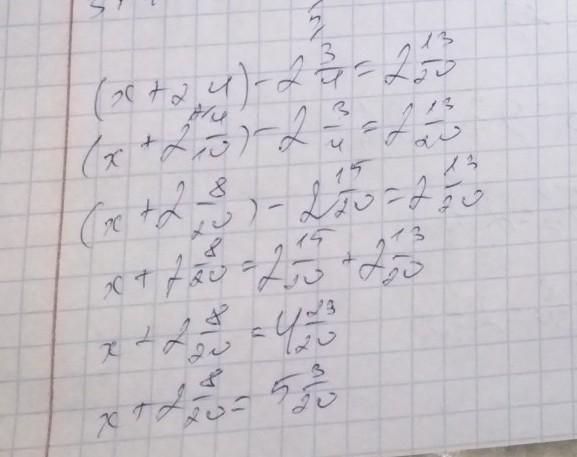 (x + 2,4) - 2 3/4 = 2 13/20
(x + 2 4/10) - 2 3/4 = 2 13/20
(x + 2 8/20) - 2 15/20 = 2 13/20
x + 2 8/20 = 2 15/20 + 2 13/20
x + 2 8/20 = 4 23/20
x + 2 8/20 = 5 3/20